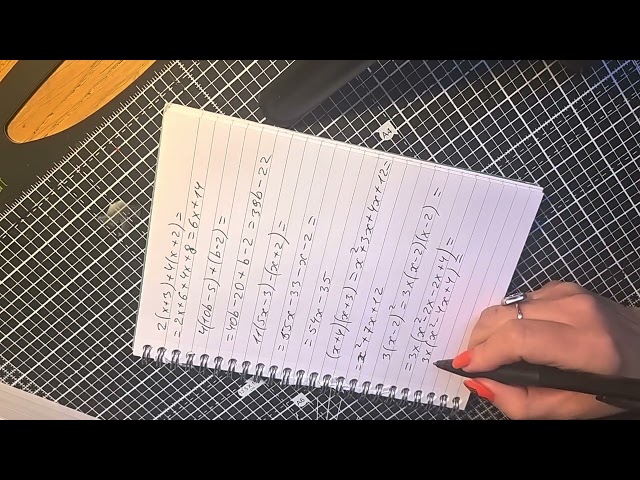 2(x+3)+4(x+2)=
=2x+6+4x+8=6x+14
4(10b-5)+(b-2)=
=40b-20+b-2=39b-22
11(5x-3)-(x+2)=
=55x-33-x-2=
=54x-35
(x+4)(x+3)=x²+3x+4x+12=
=x²+7x+12
3(x-2)²=3x(x-2)(x-2)=
=3x(x²-2x-2x+4)=
3x(x²-4x+4)=
A4
A6